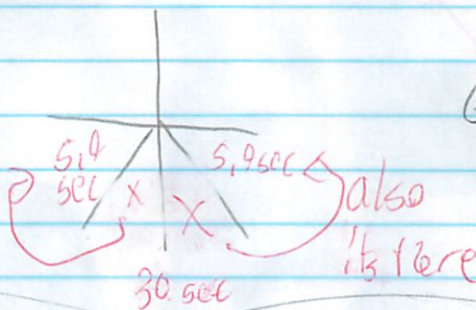 5,9 sec
5,9 sec
x
X
also
its here
30 sec